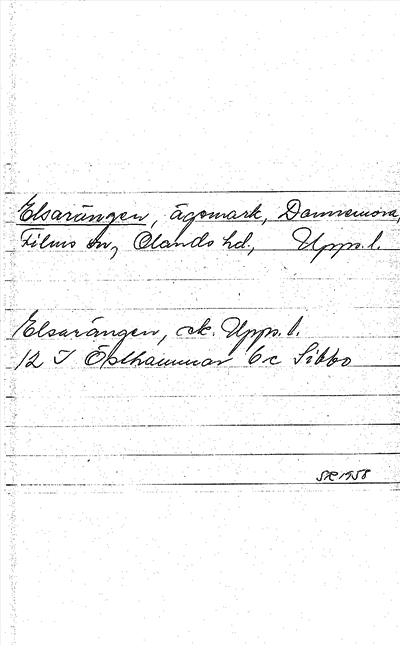 Elsarängen, ägomark, Dannemora,
Films sn, Olands hd, Upps. l.
Elsarängen, ek. Upps. l.
12 I Östhammar 6c Sibbo
SR 1958